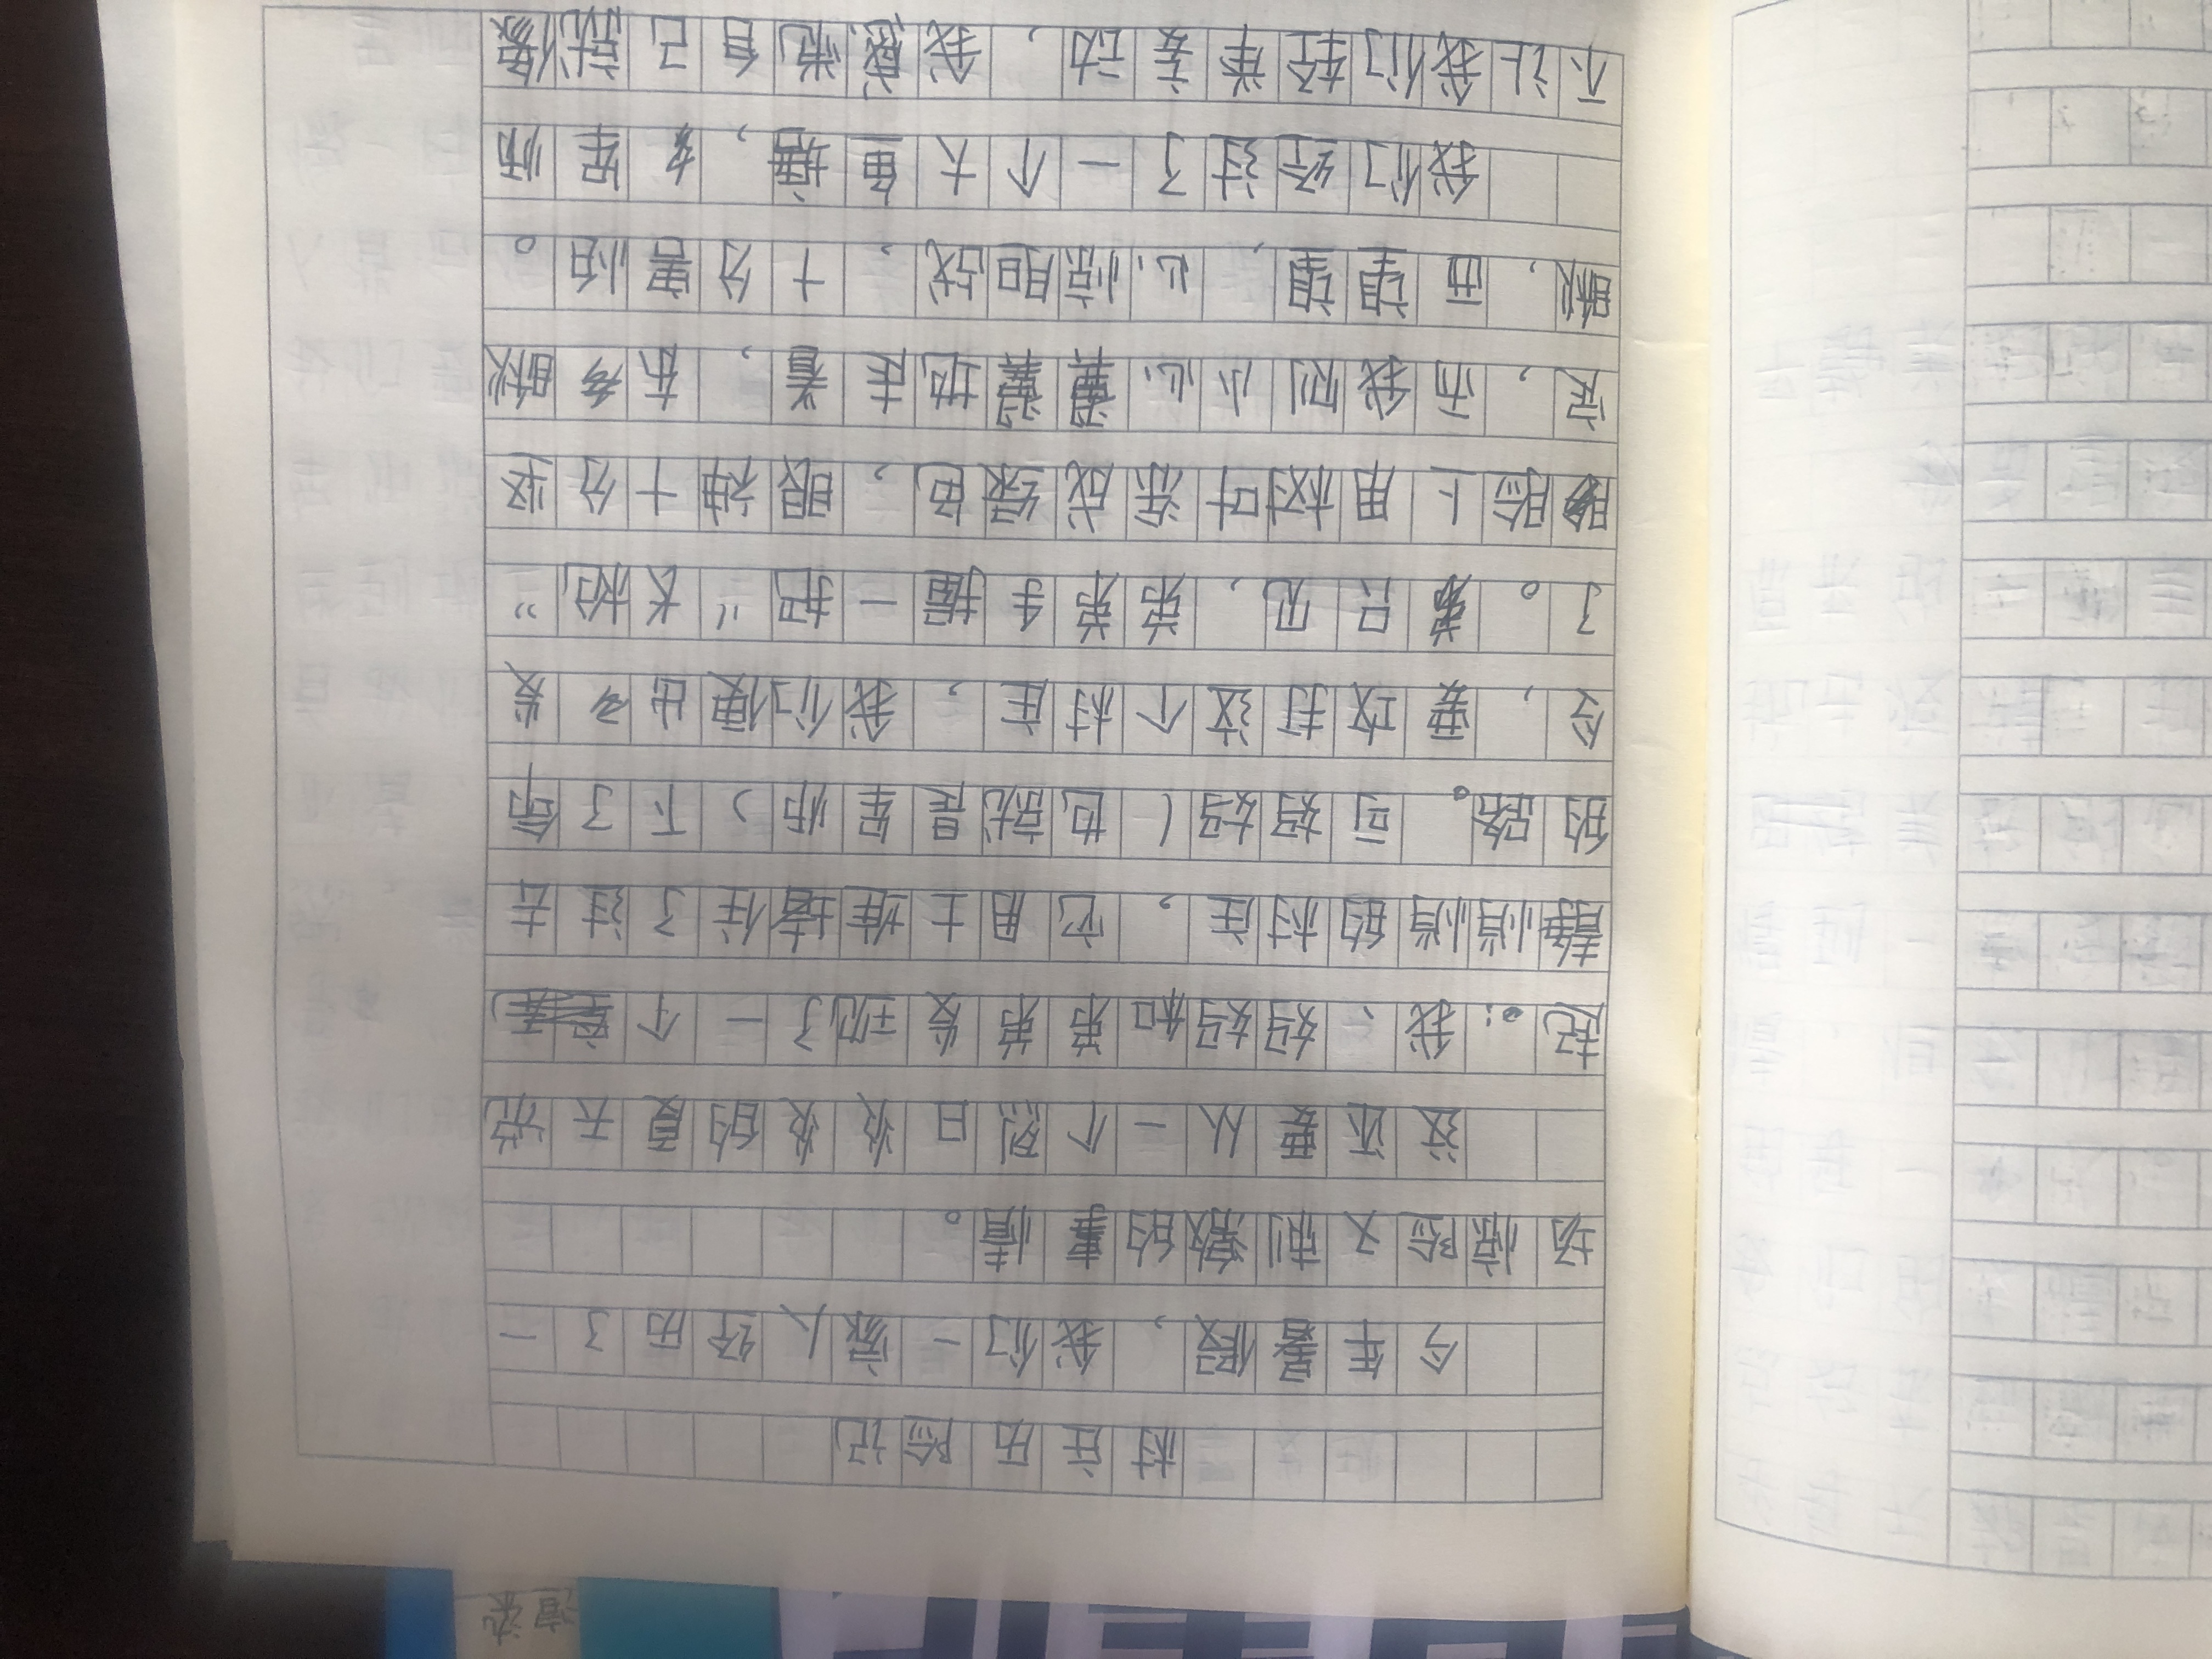 村庄历险记
今年暑假，我们一家人经历了一
场惊险又刺激的事情。
这还要从一个烈日炎炎的夏天说
起。：我、妈妈和弟弟发现了一个
静悄悄的村庄，它用土堆堵住了过去
的路。司妈妈（也就是军师）下了命
令，要攻打这个村庄，我们便出发
了。只见，弟弟手握一把“长枪”
脸上用树叶涂成绿色，眼神十分坚
定，而我则小心翼翼地走着，东瞅
瞅，西望望，心惊胆战，十分害怕。
我们经过了一个大鱼塘，军师
不让我们轻举妄动，我感觉自己就像